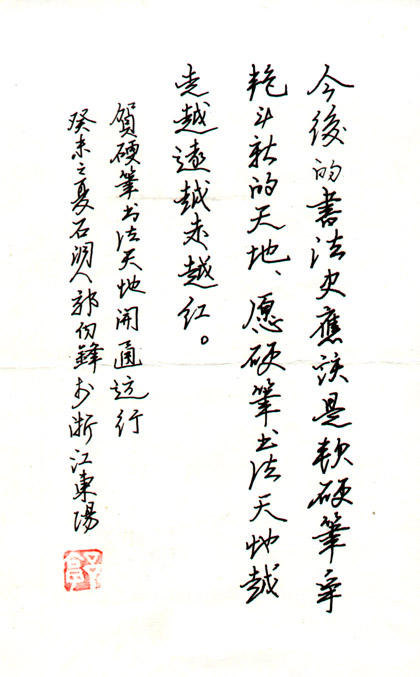 今後的書法史應該是軟硬筆爭
艳斗新的天地、愿硬筆书法天地越
走越遠越走越红。
賀硬筆书法天地開通运行
癸未之夏石洞人郭鋒於浙江東陽